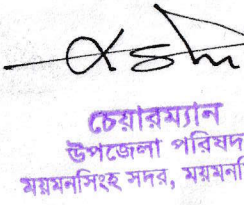 চেয়ারম্যান
উপজেলা পরিষদ
ময়মনসিংহ সদর,